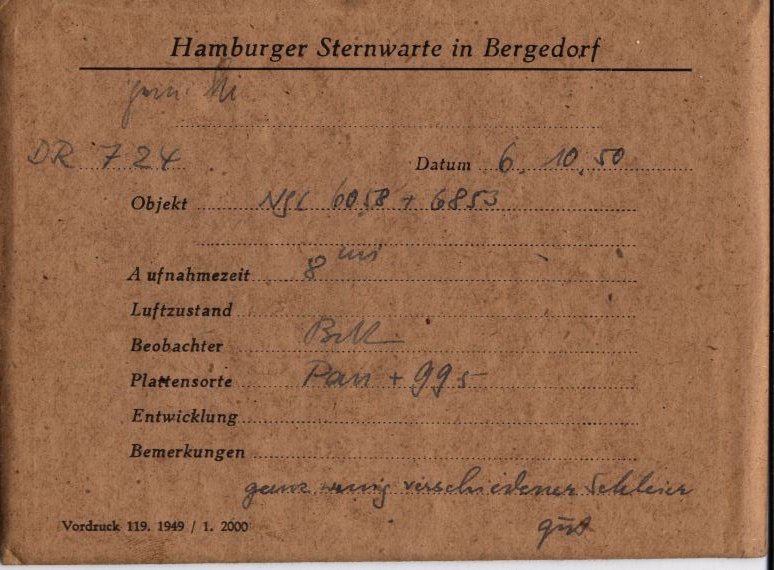 Hamburger Sternwarte in Bergedorf
DR 724
Datum 6. 10. 50
Objekt NGC 6058 + 6853
Aufnahmezeit 8
Luftzustand
Beobachter
Plattensorte Pan + 995
Entwicklung
Bemerkungen
ganz wenig verschiedener Schleier
gut
Vordruck 119. 1949 / 1. 2000